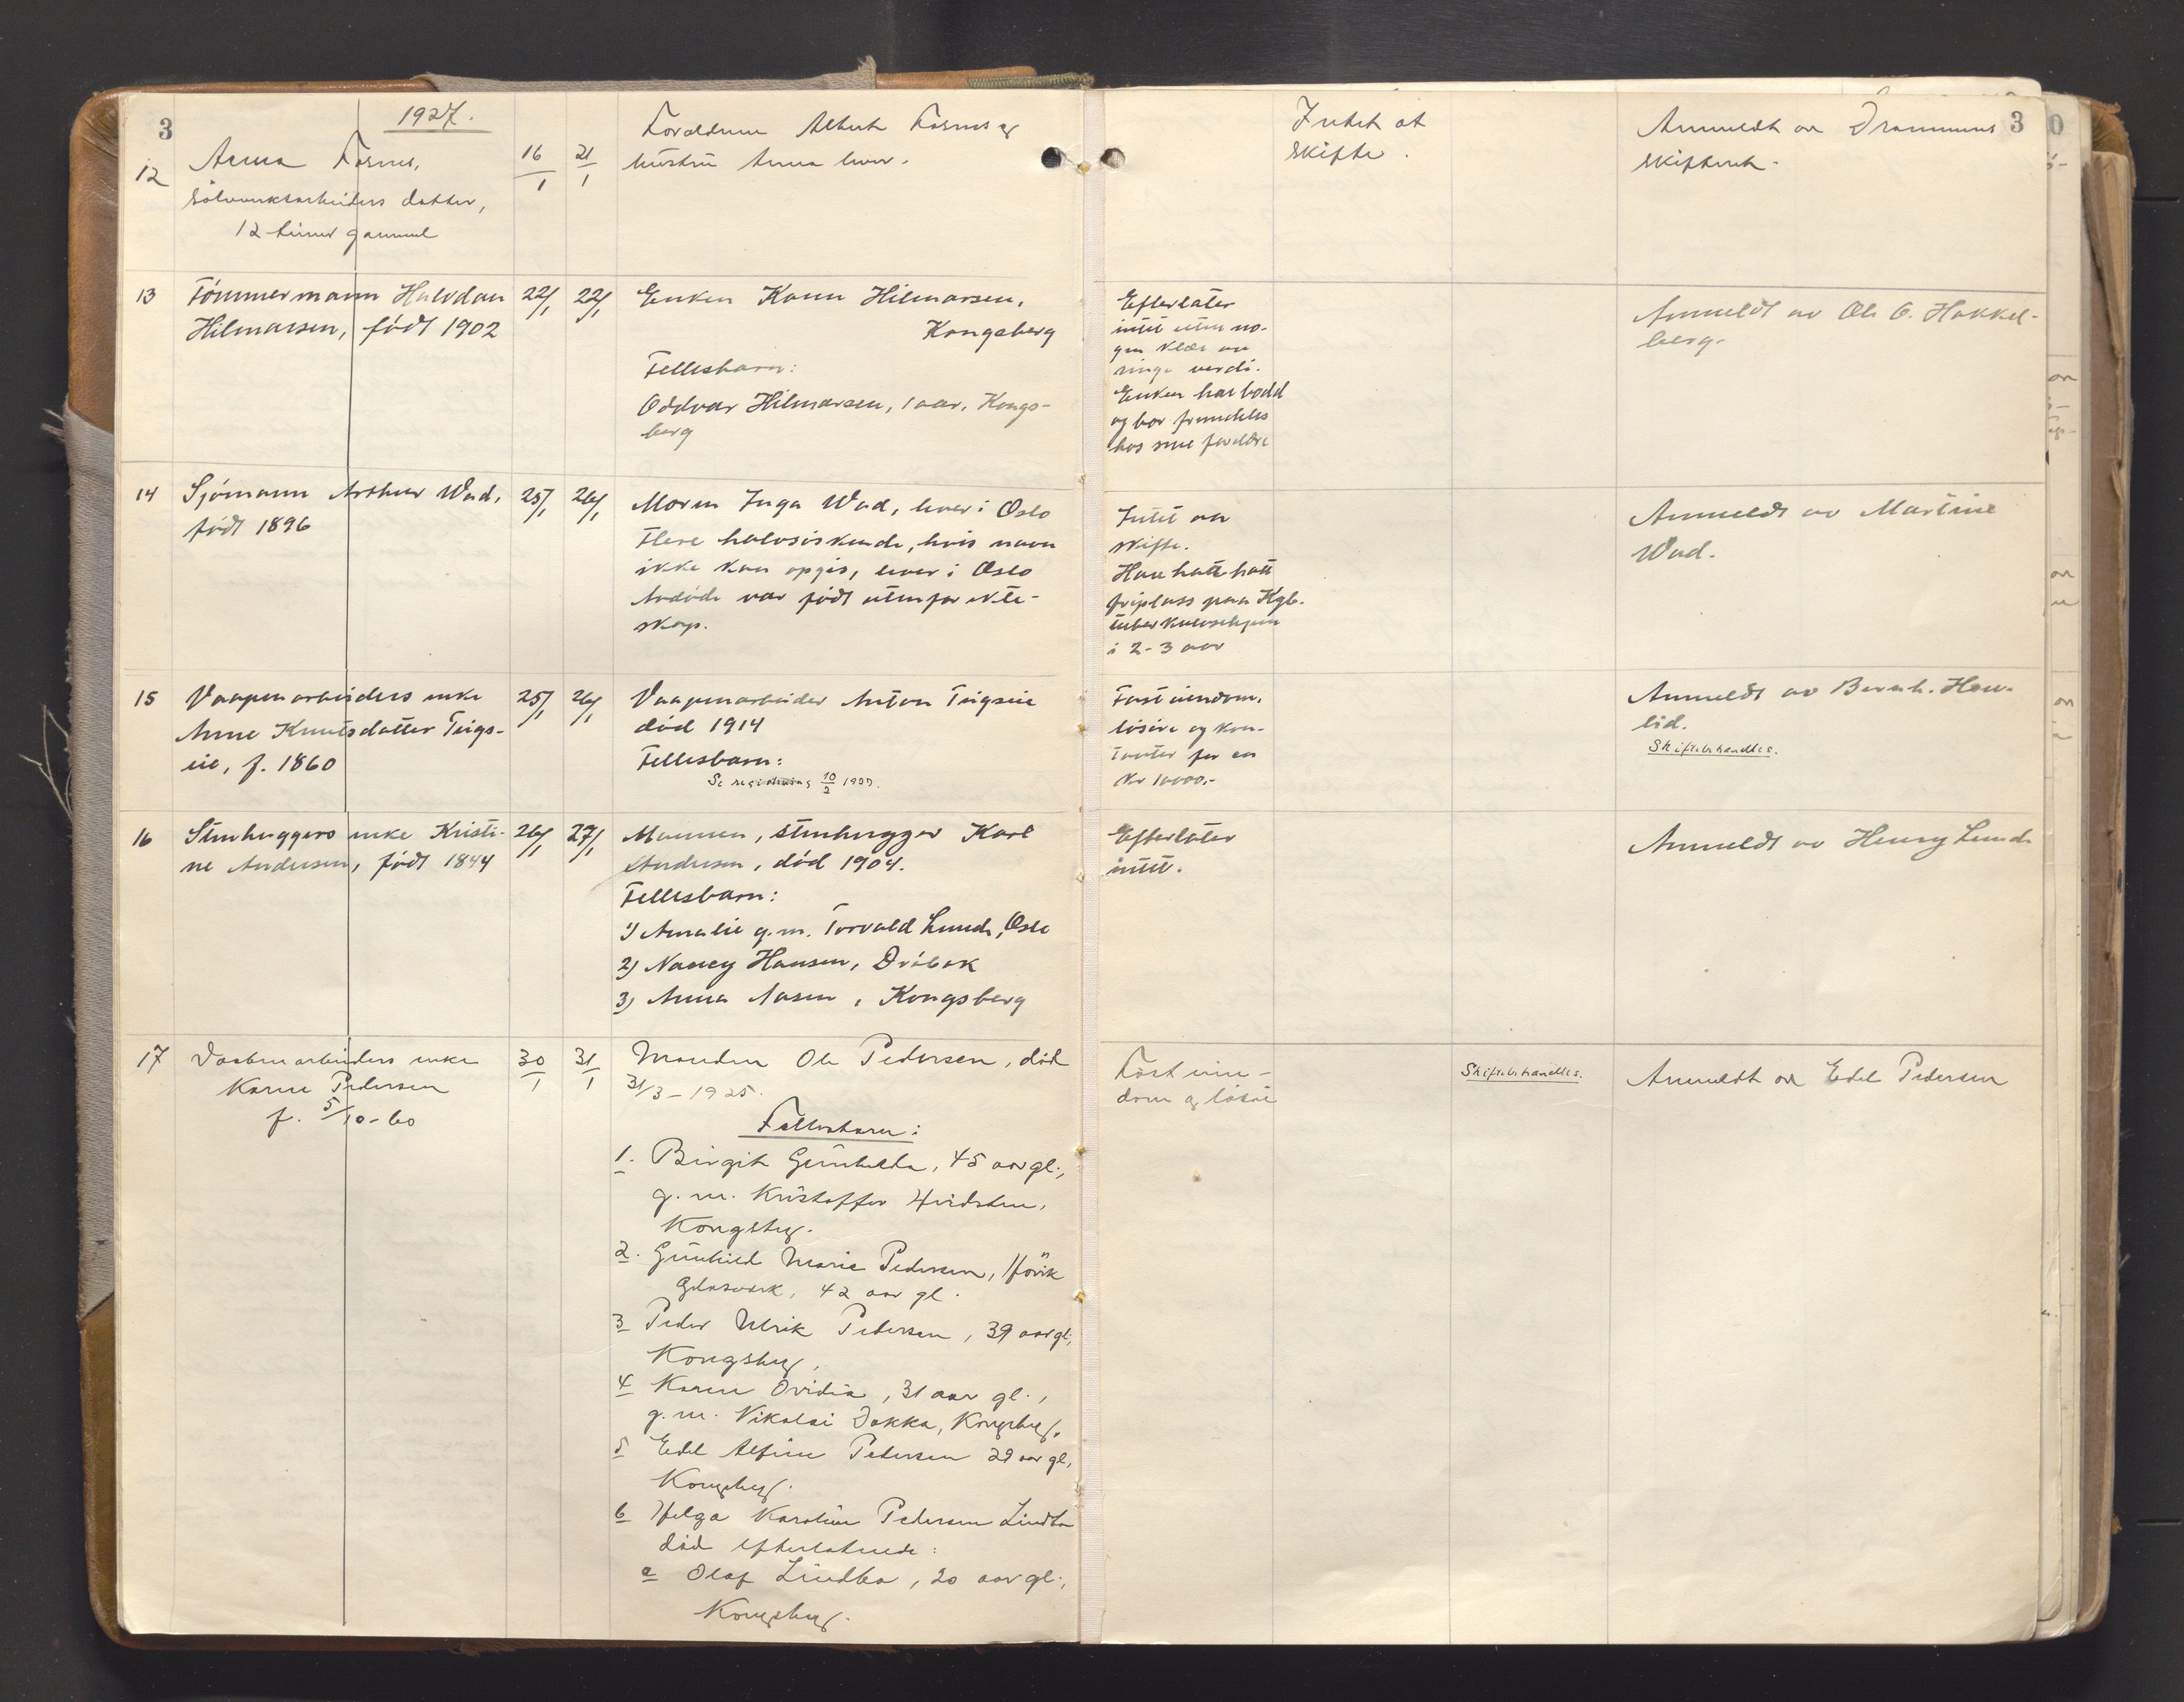 3
1927.
12
Anna
Sølvverksarbeiders datter,
12 timer gammel
16/1
21/1
Foreldrene Albert
hustru Anna lever.
Intet at
skifte.
Anmeldt av Drammens
skifterett.
3
13
Tømmermann Halvdan
Hilmarsen, født 1902
22/1
22/1
Enken Hilmarsen,
Kongsberg
Fellesbarn:
Oddvar Hilmarsen, 1 aar, Kongs-
berg
Efterlater
intet uten no-
gen klær av
ringe verdi.
Enken har bodd
og bor fremdeles
hos sine foreldre
Anmeldt av Ole G. Hakkel-
berg.
14
Sjømann Arthur Wad,
født 1896
25/1
26/1
Moren Inga Wad, lever i Oslo
Flere halvsøskende, hvis navn
ikke kan opgis, lever i Oslo
Avdøde var født utenfor ekte-
skap.
Intet aa
skifte.
Han hatt
friplass paa Kgb.
tuberkulosehjem
i 2-3 aar
Anmeldt av Martine
Wad.
15
Vaapenarbeiders enke
Anne Knutsdatter Teigs-
eie, f. 1860
25/1
26/1
Vaapenarbeider Anton Teigseie
død 1914
Fellesbarn:
Se registrering 10/2 1927.
Fast eiendom,
løsøre og kon-
tanter for ca
kr 10000,-
Anmeldt av Bernh. Hen-
lid.
Skiftebehandles.
16
Stenhuggers enke Kristi-
ne Andersen, født 1844
26/1
27/1
Mannen, stenhugger Karl
Andersen, død 1904.
Fellesbarn:
1) Amalie g.m. Torvald Lunde, Oslo
2) Nancy Hansen, Drøbak
3) Anna Aasen, Kongsberg
Efterlater
intet.
Anmeldt av Henry Lunde
17
Vaabenarbeiders enke
Karen Pedersen
f. 5/10-60
30/1
31/1
Manden Ole Pedersen, død
31/3-1925.
Fellesbarn:
1. Birgit Gunhilda, 45 aar gl.,
g.m. Kristoffer Hvidsten,
Kongsberg.
2. Gunhild Marie Pedersen, Høvik
Glasverk, 42 aar gl.
3 Peder Ulrik Pedersen, 39 aar gl.,
Kongsberg,
4 Karen Ovidia, 31 aar gl.,
g.m. Nikolai Dokka, Kongsberg.
5 Edel Alfine Pedersen 29 aar gl,
Kongsberg.
6 Helga Karoline Pedersen Lindbo
død efterlatende:
a Olaf Lindbo, 20 aar gl.,
Kongsberg.
Fast eien-
dom og løsøre
Skiftebehandles.
Anmeldt av Edel Pedersen